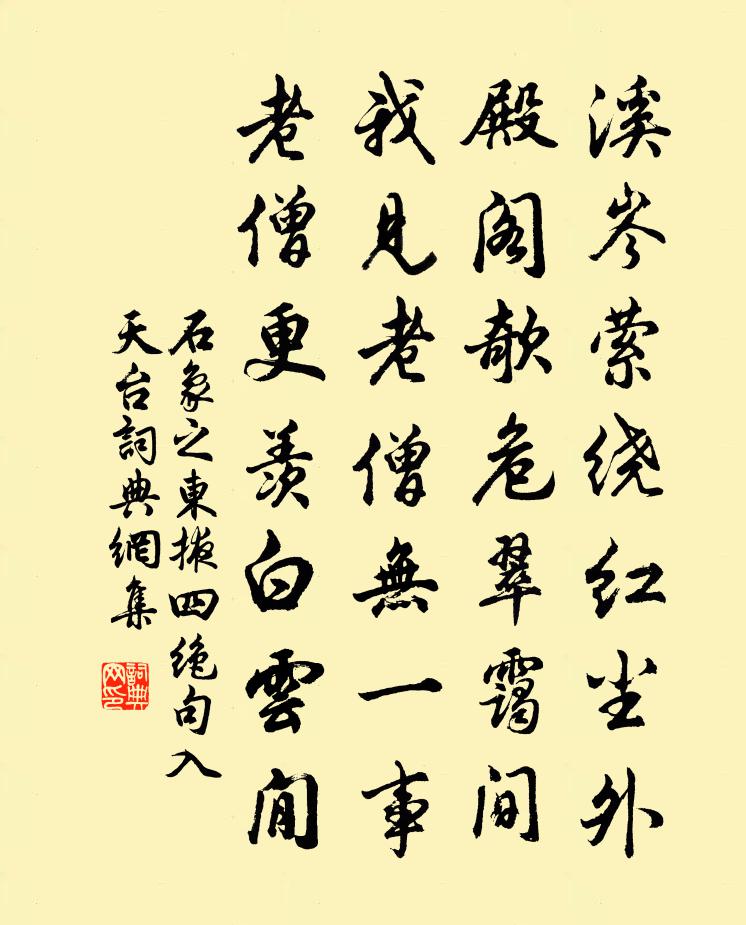 溪岑萦绕红尘外
殿阁欹危翠霭间
我见老僧無一事
老僧更羡白雲閒
石象之東掖四绝句入
天台詞典網集
詞典网印